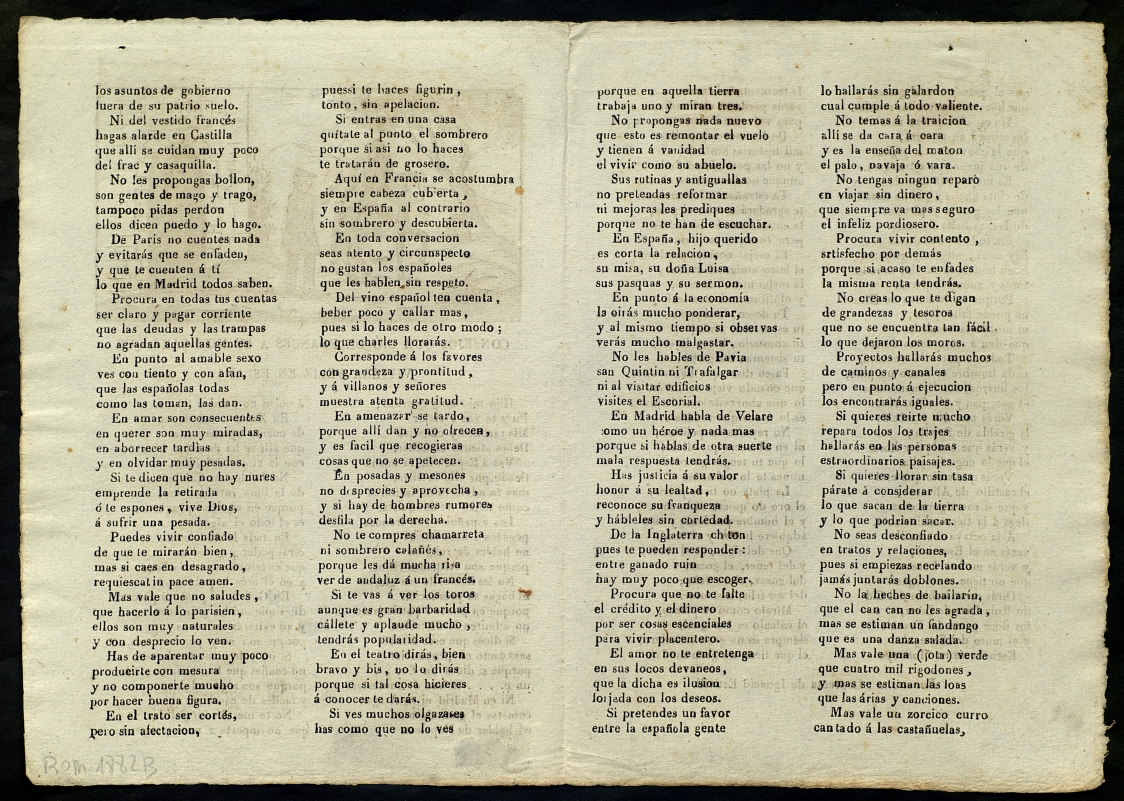 los asuntos de gobierno
fuera de su patrio suelo.
Ni del vestido francés
hagas alarde en Castilla
que allí se cuidan muy poco
del frac y casaquilla.
No les propongas bollon,
son gentes de mago y trago,
tampoco pidas perdon
ellos dicen puedo y lo hago.
De París no cuentes nada
y evitarás que se enfaden,
y que te cuenten á tí
lo que en Madrid todos saben.
Procura en todas tus cuentas
ser claro y pagar corriente
que las deudas y las trampas
no agradan aquellas gentes.
En punto al amable sexo
ves con tiento y con afan,
que las españolas todas
como las toman, las dan.
En amar son consecuentes
en querer son muy miradas,
en aborrecer tardías
y en olvidar muy pesadas.
Si te dicen que no hay nures
emprende la retirada
ó te espones, vive Dios,
á sufrir una pesada.
Puedes vivir confiado
de que te mirarán bien,
mas si caes en desagrado,
requiescat in pace amen.
Mas vale que no saludes,
que hacerlo á lo parisien,
ellos son muy naturales
y con desprecio lo ven.
Has de aparentar muy poco
producirte con mesura
y no componerte mucho
por hacer buena figura.
En el trato ser cortés,
pero sin afectacion,
puessi te haces figurin,
tonto, sin apelacion.
Si entras en una casa
quítate al punto el sombrero
porque si asi no lo haces
te tratarán de grosero.
Aquí en Francia se acostumbra
siempre cabeza cubierta,
y en España al contrario
sin sombrero y descubierta.
En toda conversacion
seas atento y circunspecto
no gustan los españoles
que les hablen sin respeto.
Del vino español ten cuenta,
beber poco y callar mas,
pues si lo haces de otro modo;
lo que charles llorarás.
Corresponde á los favores
con grandeza y prontitud,
y á villanos y señores
muestra atenta gratitud.
En amenazar se tardo,
porque allí dan y no ofrecen,
y es facil que recogieras
cosas que no se apetecen.
En posadas y mesones
no desprecies y aprovecha,
y si hay de hombres rumores
desfila por la derecha.
No te compres chamarreta
ni sombrero calañés,
porque les dá mucha risa
ver de andaluz á un francés.
Si te vas á ver los toros
aunque es gran barbaridad
cállete y aplaude mucho,
tendrás popularidad.
En el teatro dirás, bien
bravo y bis, no lo dirás
porque si tal cosa hicieres
á conocer te darás.
Si ves muchos olgazases
has como que no lo ves
porque en aquella tierra
trabaja uno y miran tres.
No propongas nada nuevo
que esto es remontar el vuelo
y tienen á vanidad
el vivir como su abuelo.
Sus rutinas y antiguallas
no pretendas reformar
ni mejoras les prediques
porque no te han de escuchar.
En España, hijo querido
es corta la relacion,
su misa, su doña Luisa
sus pasquas y su sermon.
En punto á la economía
la oirás mucho ponderar,
y al mismo tiempo si observas
verás mucho malgastar.
No les hables de Pavia
san Quintin ni Trafalgar
ni al visitar edificios
visites el Escorial.
En Madrid habla de Velare
como un héroe y nada mas
porque si hablas de otra suerte
mala respuesta tendrás.
Has justicia á su valor
honor á su lealtad,
reconoce su franqueza
y hábleles sin cortedad.
De la Inglaterra chiton
pues te pueden responder:
entre ganado ruin
hay muy poco que escoger.
Procura que no te falte
el crédito y el dinero
por ser cosas escenciales
para vivir placentero.
El amor no te entretenga
en sus locos devaneos,
que la dicha es ilusion
forjada con los deseos.
Si pretendes un favor
entre la española gente
lo hallarás sin galardon
cual cumple á todo valiente.
No temas á la traicion
alli se da cara á cara
y es la enseña del maton
el palo, navaja ó vara.
No tengas ningun reparo
en viajar sin dinero,
que siempre va mas seguro
el infeliz pordiosero.
Procura vivir contento,
srtisfecho por demás
porque si acaso te enfades
la misma renta tendrás.
No creas lo que te digan
de grandezas y tesoros
que no se encuentra tan fácil
lo que dejaron los moros.
Proyectos hallarás muchos
de caminos y canales
pero en punto á ejecucion
los encontrarás iguales.
Si quieres reirte mucho
repara todos los trajes
hallarás en las personas
estraordinarios paisajes.
Si quieres llorar sin tasa
párate á considerar
lo que sacan de la tierra
y lo que podrian sacar.
No seas desconfiado
en tratos y relaciones,
pues si empiezas recelando
jamás juntarás doblones.
No la heches de bailarín,
que el can can no les agrada,
mas se estiman un fandango
que es una danza salada.
Mas vale una (jota) verde
que cuatro mil rigodones,
y mas se estiman las loas
que las árias y canciones.
Mas vale un zorcico curro
cantado á las castañuelas,
Rom 1882B